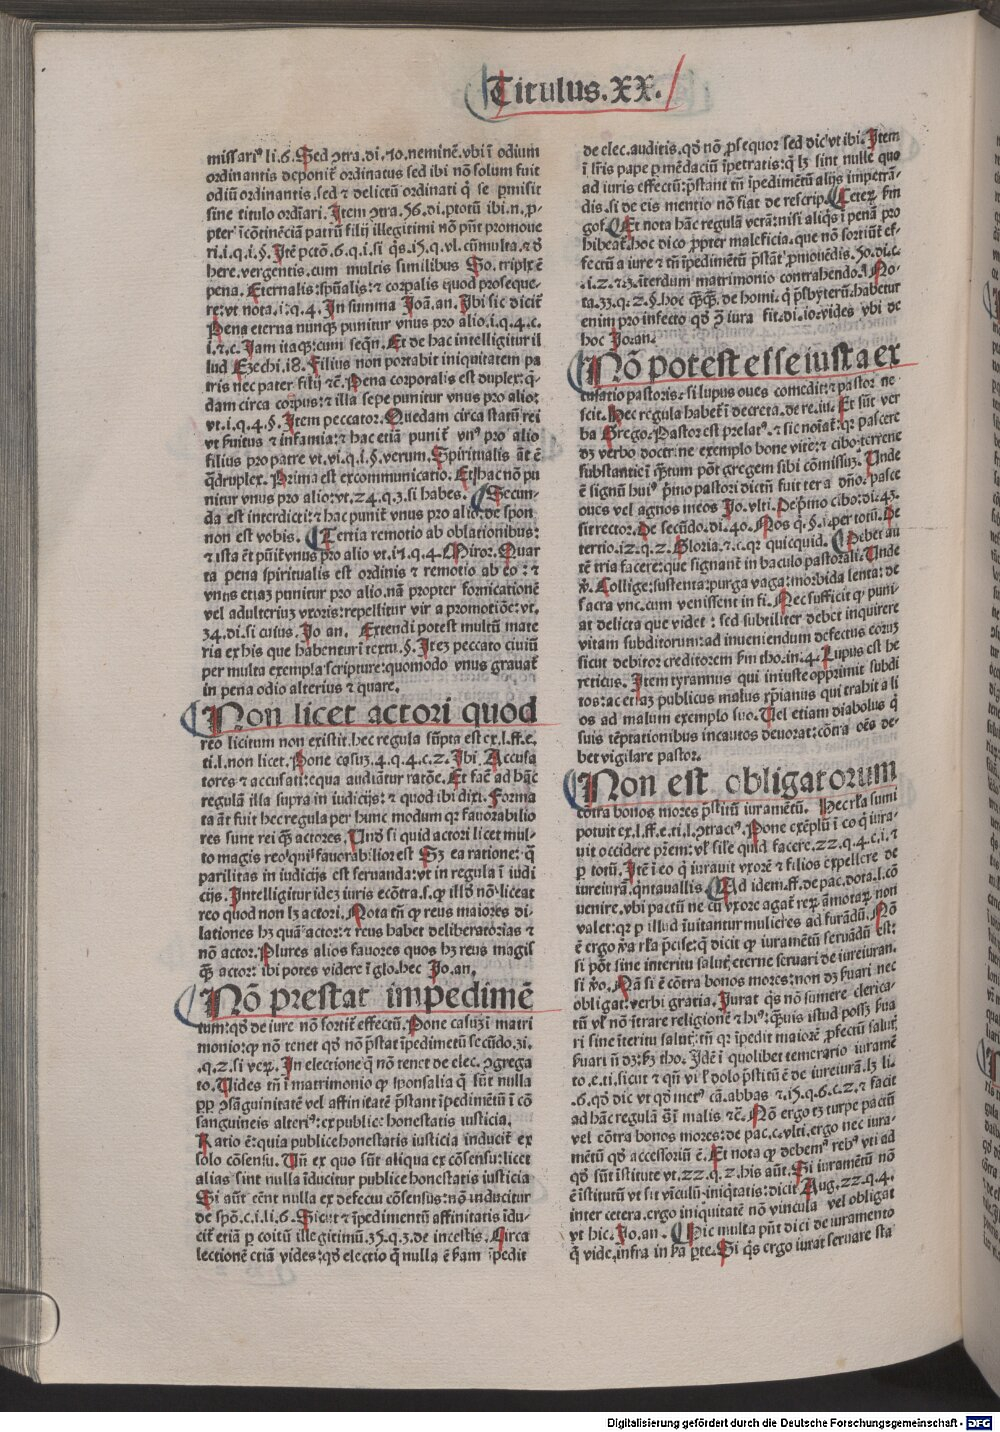 Titulus.XX.
missari⁹ li.6. Sed ꝯtra.di.40.neminē.vbi ī odium
ordinantis deponit̃ ordinatus sed ibi nō solum fuit
odiū ordinantis.sed ⁊ delictū ordinati q̃ se ꝓmisit
sine titulo ordīari. Item ꝯtra.56.di.ptotū ibi.n.ꝓ-
pter īcōtinēciā patrū filij illegitimi nō pñt promoue
ri.i.q.i.§. Itē pctō.6.q.i.si q̃s.15.q.vl. cū multa.⁊ d̃
here.vergentis.cum multis similibus So. triplx ē
pena. Eternalis:spũalis:⁊ corꝑalis quod proseque-
re:vt nota.i.q.4. In summa Joā.an. Ibi sic dicit̃
Pena eterna nunq̃ punitur vnus pro alio.i.q.4.c.
i.⁊.c. Jam itaq̃:cum seqñ. Et de hac intelligitur il
lud Ezechi.18. Filius non portabit iniquitatem pa
tris nec pater filij ⁊c̃. Pena corporalis est duplex:q̃-
dam circa corpus:⁊ illa sepe punitur vnus pro alio:
vt.i.q.4.§. Item peccator. Quedam circa statū rei
vt ẜuitus ⁊ infamia:⁊ hac etiā punit̃ vn⁹ pro alio
filius pro patre vt.vi.q.i.§.verum. Spiritualis āt ē
q̃druplex. Prima est excommunicatio. Et hac nō pu
nitur vnus pro alio:vt.24.q.3.si habes. Secun-
da est interdicti:⁊ hac punit̃ vnus pro alio:de spon
non est vobis. Tertia remotio ab oblationibus:
⁊ ista ēt pūit̃ vnus pro alio vt.17.q.4. Miror. Quar
ta pena spiritualis est ordinis ⁊ remotio ab eo:⁊
vnus etiaꝫ punitur pro alio.nā propter fornicationē
vel adulteriuꝫ vxoris:repellitur vir a promotiōe:vt.
34.di.si cuius. Jo an. Extendi potest multū mate
ria ex his que habentur ī textu.§. Iteꝫ peccato ciuiū
per multa exempla scripture:quomodo vnus grauat̃
in pena odio alterius ⁊ quare.
Non licet actori quod
reo licitum non existit.hec regula sūpta est ex.l.ff.e.
ti.l.non licet. Pone casuꝫ.4.q.4.c.2. Ibi Accusa
tores ⁊ accusati:equa audiātur ratōe. Et faē ad hāc
regulā illa supra in iudicijs:⁊ quod ibi dixi. Forma
ta āt fuit hec regula per hunc modum qr fauorabilio
res sunt rei q̃ꝫ actores. Un̄ si quid actori licet mul-
to magis reo qui fauorabilior est Sꝫ ea ratione:q̃
parilitas in iudicijs est seruanda:vt in regula ī iudi
cijs. Intelligitur ideꝫ iuris ecōtra.s.ꝙ illđ nō liceat
reo quod non lꝫ actori. Nota tñ ꝙ reus maiores di-
lationes hꝫ quā actor:⁊ reus habet deliberatorias ⁊
nō actor. Plures alios fauores quos hꝫ reus magis
q̃ꝫ actor: ibi potes videre ī glo.hec Jo.an.
Nō prestat impedimē
tum:qđ de iure nō sortit̃ effectū. Pone casuꝫ ī matri
monio:ꝙ nō tenet qđ nō p̃stat īpedimētū secūdo.31.
q.2.si veꝝ. In electione q̃ nō tenet de elec. ꝯgrega
to. Uides tñ ī matrimonio ꝙ sponsalia q̃ sūt nulla
ꝓꝑ ꝯsāguinitatē vel affinitatē p̃stant īpedimētū ī cō
sanguineis alteri⁹:ex publice honestatis iusticia.
Ratio ē:quia publice honestatis iusticia inducit̃ ex
solo cōsensu. Uñ ex quo sūt aliqua ex cōsensu:licet
alias sint nulla īducitur publice honestatis iusticia
Si aūt eēnt nulla ex defectu cōsensus:nō inducitur
de spō.c.i.li.6. Sicut ⁊ īpedimentū affinitatis īdu-
cit̃ etiā ꝑ coitū illegitimū.35.q.3.de incestis. Circa
lectionē etiā vides:qđ electio q̃ nulla ē ẜam īpedit
de elec.auditis.qđ nō ꝓsequor sed dic vt ibi. Item
ī lr̃is pape ꝑ mēdaciū īpetratis:q̃ lꝫ sint nulle quo
ad iuris effectū:p̃stant tñ īpedimētū alijs impetrā-
dis.si de eis mentio nō fiat de rescrip. Ceteꝝ ẜm
gof. Et nota hāc regulā verā:nisi aliq̃s ī penā pro
hibeat̃.hoc dico ꝓpter maleficia.que nō sortiūt̃ ef-
fectū a iure ⁊ tñ īpedimētū p̃stāt ꝓmouēdis.50.di.c.
.i.2.⁊.3.īterdum matrimonio contrahendo. No-
ta.33.q.2.§.hoc q̃q̃ꝫ.de homi.q̃ p̃sbyterū.habetur
enim pro infecto qđ ꝯ̃ iura fit.di.10.vides vbi de
hoc Jo.an.
Nō potest esse iusta ex
cusatio pastoris.si lupus oues comedit:⁊ pastor ne
scit. Hec regula habet̃ ī decreta.de re.iu. Et sūt ver
ba Grego. Pastor est prelat⁹.⁊ sic noīat̃:qr pascere
dꝫ verbo doctrine exemplo bone vite:⁊ cibo terrene
substantie:ī q̃ꝫtum pōt gregem sibi cōmissuꝫ. Unde
ē signū hui⁹ p̃mo pastori dictū fuit ter a dño. pasce
oues vel agnos meos Jo.vlti. De p̃mo cibo:di.43.
sit rector. De secūdo.di.40. Nos q̃.§.i.per totū. De
tertio.12.q.2. Gloria.⁊.c.qr quicquid. Debet au
tē tria facere:que signant̃ in baculo pastorali. Unde
ꝟ. Collige:sustenta:purga vaga:morbida lenta:de
sacra vnc.cum venissent in fi. Nec sufficit ꝙ puni-
at delicta que videt: sed subtiliter debet inquirere
vitam subditorum:ad inueniendum defectus eorūꝫ
sicut debitor creditorem ẜm tho.in.4. Lupus est he
reticus. Item tyrannus qui iniuste opprimit subdi
tos:ac etiaꝫ publicus malus xp̄ianus qui trahit ali
os ad malum exemplo suo. Uel etiam diabolus q̃
suis tēptationibus incautos deuorat:cōtra oēs de-
bet vigilare pastor.
Non est obligatorum
cōtra bonos mores p̃stitū iuramētū. Hec rl̃a sumi
potuit ex.l.ff.e.ti.l.ꝯtract⁹. Pone exēplū ī eo q̃ iura-
uit occidere pr̃em:vl̃ sil̃e quid facere.22.q.4.c.i.⁊
ꝑ totū. Itē ī eo q̃ iurauit vxorē ⁊ filios expellere de
iureiurā.q̃ntauallis. Ad idem.ff.de pac.dota.l.cō
uenire.vbi pactū ne cū vxore agat̃ reꝝ āmotaꝝ non
valet:qr ꝑ illud īuitantur mulieres ad furādū. Nō
ē ergo ꝟa rl̃a p̃cise:q̃ dicit ꝙ iuramētū seruādū est:
si pōt sine interitu salut̃ eterne seruari de iureiuran.
si ꝟo. Nā si ē cōtra bonos mores:non dꝫ ẜuari nec
obligat:verbi gratia. Jurat q̃s nō sumere clerica-
tū vl̃ nō ītrare religionē ⁊ hi⁹:q̃ꝫuis istud possꝫ ẜua
ri sine īteritu salut̃:tñ qr īpedit maiorē ꝓfectū salut̃
ẜuari ñ dꝫ:ẜꝫ tho. Idē ī quolibet temerario iuramē
to.e.ti.sicut ⁊ qñ vi vl̃ dolo p̃stitū ē de iureiurā.lꝫ li-
.6.qđ dic vt qđ met⁹ cā.abbas ⁊.15.q.6.c.2.⁊ facit
ad hāc regulā 8̃ ī malis ⁊c̃. Nō ergo tꝫ turpe pactū
vel cōtra bonos mores:de pac.c.vlti.ergo nec iura-
mētū qđ accessoriū ē. Et nota ꝙ debem⁹ reb⁹ vti ad
qđ sūt īstitute vt.22.q.2.his aūt. Si iuramētū nō
ē īstitutū vt sit vīculū īniq̃tatis:dicit Aug.22.q.4.
inter cetera.ergo iniquitatē nō vincula vel obligat
vt hic. Jo.an. Hic multa pñt dici de iuramento
q̃ vide.infra in ẜa ꝑte. Si q̃s ergo iurat seruare sta
Digitalisierung gefördert durch die Deutsche Forschungsgemeinschaft - DFG